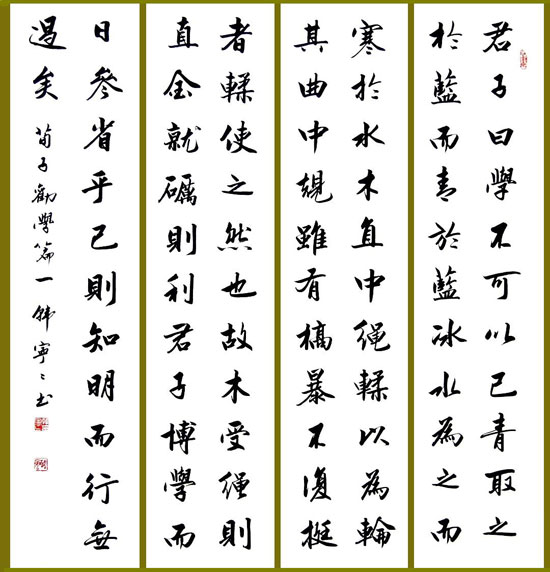 君子曰學不可以已青取之
於藍而青於藍冰水為之而
寒於水木直中繩輮以為輪
其曲中規雖有槁暴不復挺
者輮使之然也故木受繩則
直金就礪則利君子博學而
日參省乎己則知明而行無
過矣 荀子勸學篇一 韓寧〻書